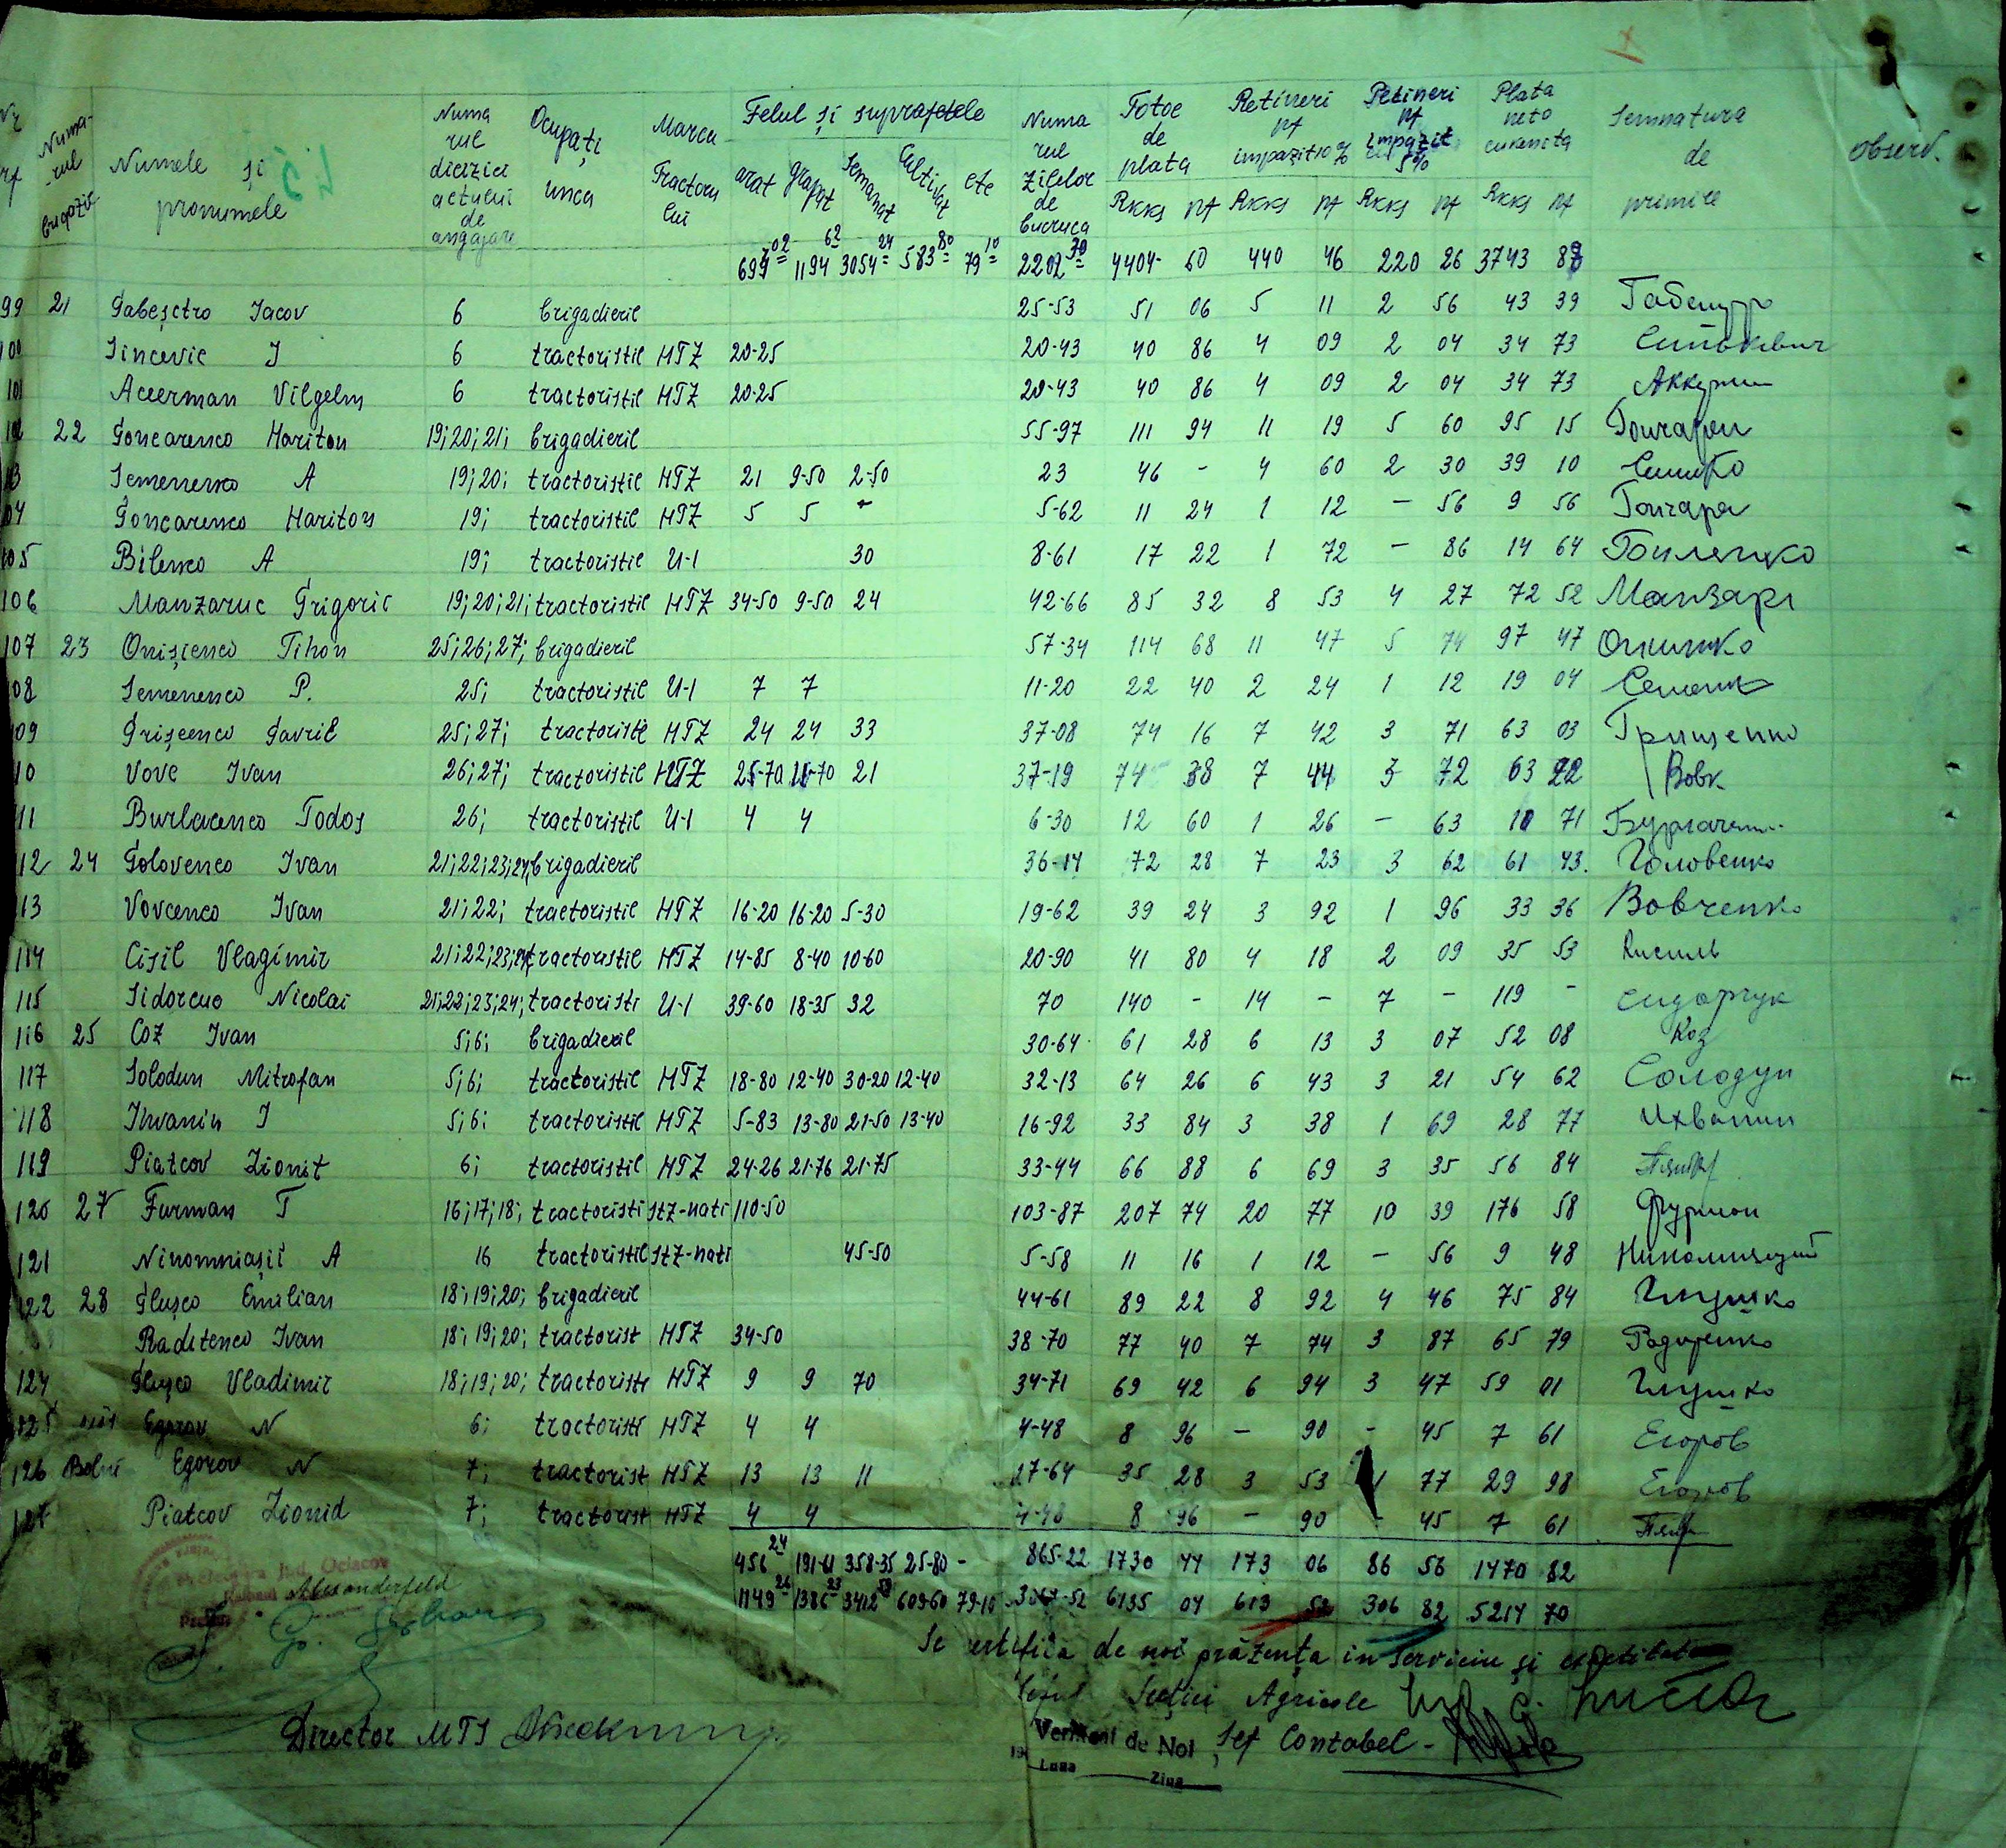 Nr Numa- Numele și Numa Ocupați Marca Felul și suprafetele Numa Totoe Retineri Retineri Plata Semnatura observ.
rf -rul pronumele rul unea Tractoru arat grapat Semanat Cultivat ete rul de pt pt neto de
brigazii diezici lui zilelor plata impozit 10% impozit 5% cuvenita primire
actului de Rkks pf Rkks pf Rkks pf Rkks pf
de angajare lucruca
699 02 1194 62 3054 24 583 80 79 10 2202 30 4404- 60 440 46 220 26 3743 88
99 21 Gabesctro Iacov 6 brigadieril 25-53 51 06 5 11 2 56 43 39
100 Sincevic I 6 tractoristil HTZ 20-25 20-43 40 86 4 09 2 04 34 73 Синькевич
101 Accerman Vilgelm 6 tractoristil HTZ 20-25 20-43 40 86 4 09 2 04 34 73
102 22 Goncarenco Hariton 19; 20; 21; brigadieril 55-97 111 94 11 19 5 60 95 15 Гончарен
13 Semenenco A 19; 20; tractoristil HTZ 21 9-50 2-50 23 46 - 4 60 2 30 39 10
04 Goncarenco Hariton 19; tractoristil HTZ 5 5 - 5-62 11 24 1 12 - 56 9 56 Гончарен
105 Bilenco A 19; tractoristil U-1 30 8-61 17 22 1 72 - 86 14 64
106 Manzaruc Grigoric 19; 20; 21; tractoristil HTZ 34-50 9-50 24 42-66 85 32 8 53 4 27 72 52 Манзарг
107 23 Onișcenco Tihon 25; 26; 27; brigadieril 57-34 114 68 11 47 5 74 97 47 Онишко
08 Semenenco P. 25; tractoristil U-1 7 7 11-20 22 40 2 24 1 12 19 04
09 Grișcenco Gavril 25; 27; tractoristil HTZ 24 24 33 37-08 74 16 7 42 3 71 63 03 Грищенко
10 Vovc Ivan 26; 27; tractoristil HTZ 25-70 15-70 21 37-19 74 38 7 44 3 72 63 22 Вовк
11 Burlacenco Todos 26; tractoristil U-1 4 4 6-30 12 60 1 26 - 63 10 71
12 24 Golovenco Ivan 21; 22; 23; 24; brigadieril 36-14 72 28 7 23 3 62 61 43. Головенко
13 Vovcenco Ivan 21; 22; tractoristil HTZ 16-20 16-20 5-30 19-62 39 24 3 92 1 96 33 36 Вовченко
114 Cisil Vlagimir 21; 22; 23; 24; tractoristil HTZ 14-85 8-40 10-60 20-90 41 80 4 18 2 09 35 53 Кисиль
115 Sidorcuo Nicolai 21; 22; 23; 24; tractoristi U-1 39-60 18-35 32 70 140 - 14 - 7 - 119 - Сидорчук
116 25 Coz Ivan 5; 6; brigadieril 30-64 61 28 6 13 3 07 52 08 Коз
117 Solodun Mitrofan 5; 6; tractoristil HTZ 18-80 12-40 30-20 12-40 32-13 64 26 6 43 3 21 54 62 Солодун
118 Ihvanin I 5; 6; tractoristil HTZ 5-83 13-80 21-50 13-40 16-92 33 84 3 38 1 69 28 77 Ихванин
119 Piatcov Lionit 6; tractoristil HTZ 24-26 21-76 21-75 33-44 66 88 6 69 3 35 56 84
120 27 Furman T 16; 17; 18; tractoristi Stz-nati 110-50 103-87 207 74 20 77 10 39 176 58 Фурман
121 Nicomniașii A 16 tractoristil Stz-nati 45-50 5-58 11 16 1 12 - 56 9 48
122 28 Glușco Emilian 18; 19; 20; brigadieril 44-61 89 22 8 92 4 46 75 84 Глушко
Raditenco Ivan 18; 19; 20; tractorist HTZ 34-50 38-70 77 40 7 74 3 87 65 79
124 Glușco Vladimir 18; 19; 20; tractoristi HTZ 9 9 70 34-71 69 42 6 94 3 47 59 01 Глушко
125 Egorov N 6; tractoristi HTZ 4 4 4-48 8 96 - 90 - 45 7 61 Егоров
126 Egorov N 7; tractorist HTZ 13 13 11 17-64 35 28 3 53 1 77 29 98 Егоров
127 Piatcov Lionid 7; tractorist HTZ 4 4 4-48 8 96 - 90 - 45 7 61
456 24 191-61 358-35 25-80 - 865-22 1730 44 173 06 86 56 1470 82
1149 26 1386 23 3412 59 609-60 79-10 3067-52 6135 04 613 52 306 82 5214 70
Jud. Oceacov
Alexanderfeld
Se certifica de noi prăzența in serviciu și
Șeful Secției Agricole
Director MTS
Verificat de Noi Șef Contabel -
19 Luna Ziua